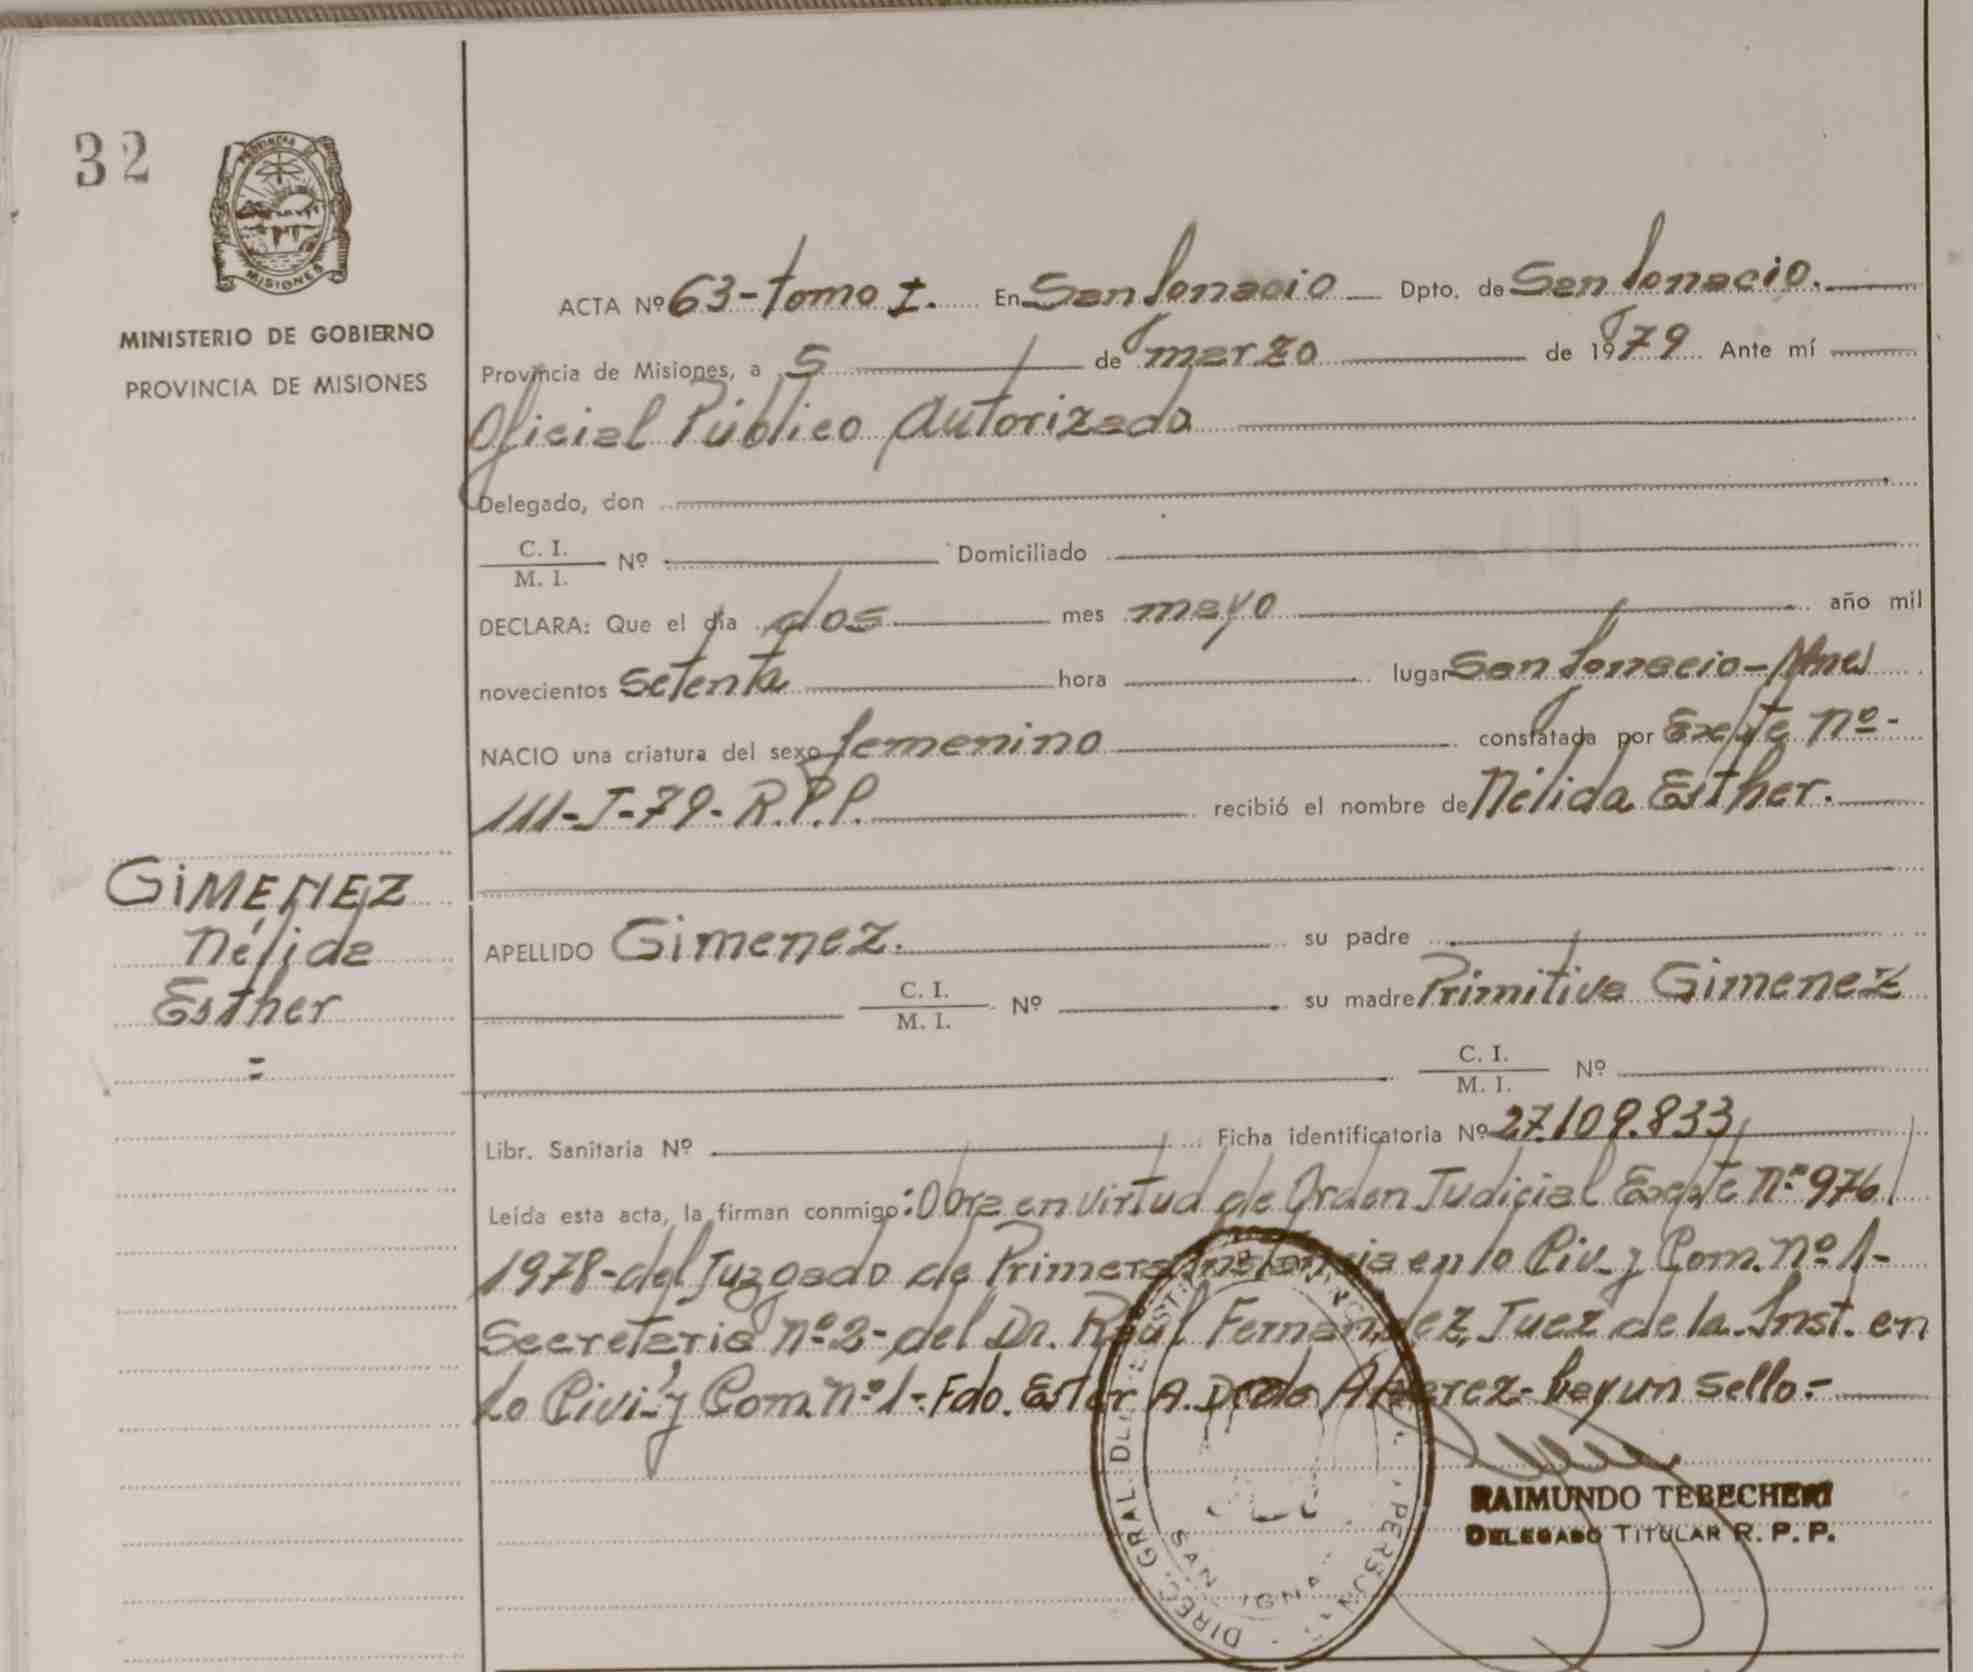 32
PROVINCIA DE
MISIONES
MINISTERIO DE GOBIERNO
PROVINCIA DE MISIONES
ACTA Nº 63-tomo I. En San Ignacio Dpto. de San Ignacio.
Provincia de Misiones, a 5 de marzo de 1979 Ante mí
Oficial Público Autorizado
Delegado, don
C. I.
M. I. Nº Domiciliado
DECLARA: Que el día dos mes mayo año mil
novecientos setenta hora lugar San Ignacio-Mnes
NACIO una criatura del sexo femenino constatada por Expte Nº-
111-J-79-R.P.P. recibió el nombre de Nélida Esther.
GIMENEZ
Nélida
Esther
=
APELLIDO Gimenez. su padre
C. I.
M. I. Nº su madre Primitiva Gimenez
C. I.
M. I. Nº
Libr. Sanitaria Nº Ficha identificatoria Nº 27.109.833
Leída esta acta, la firman conmigo: Obra en virtud de Orden Judicial Expte Nº 976/
1978-del Juzgado de Primera Instancia en lo Civ. y Com. Nº 1-
Secretaria Nº 2- del Dr. Raúl Fernandez, Juez de 1a. Inst. en
lo Civil y Com. Nº 1-. Fdo. Ester A. Alvarez- hay un sello.-
RAIMUNDO TEBECHERI
DELEGADO TITULAR R. P. P.
DIREC. GRAL. DEL
SAN IGNA